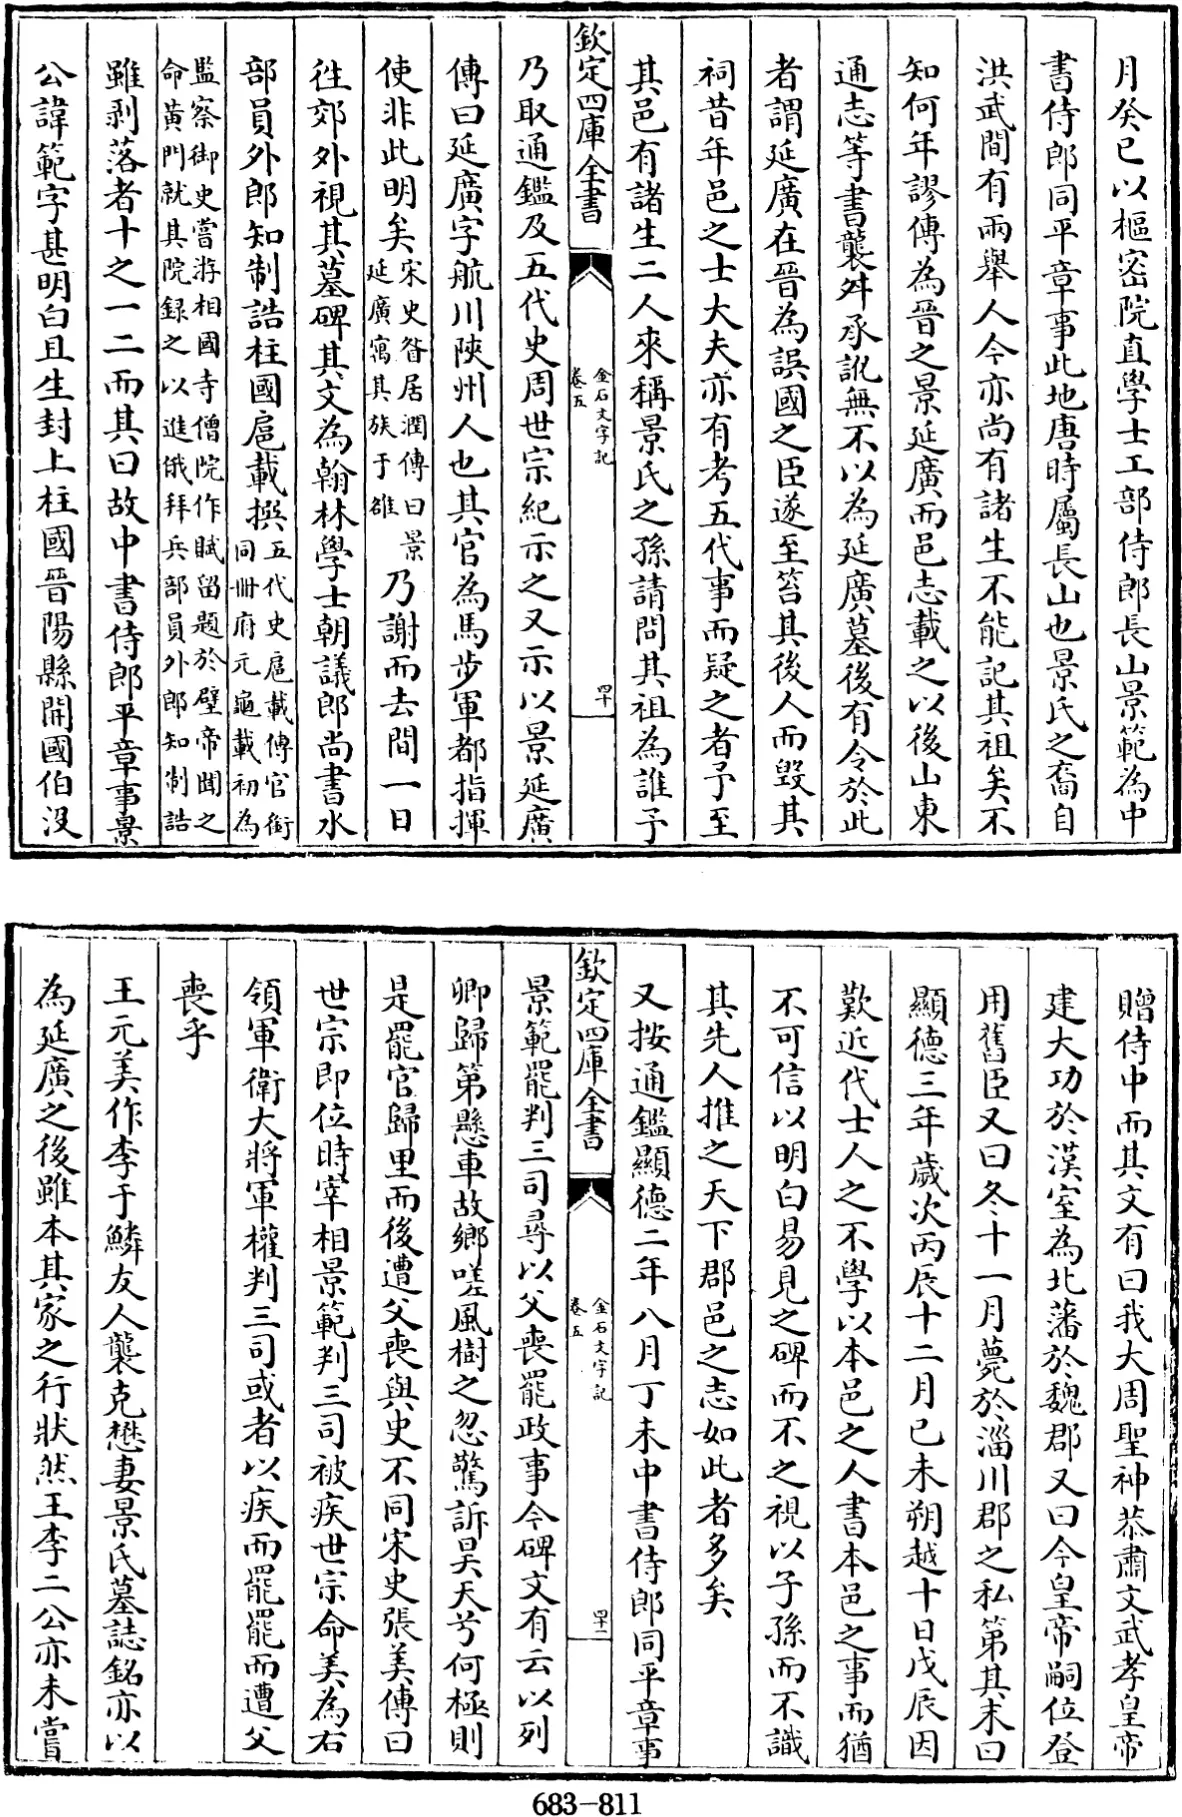 月癸巳以樞密院直學士工部侍郎長山景範為中
書侍郎同平章事此地唐時屬長山也景氏之裔自
洪武間有兩舉人今亦尚有諸生不能記其祖矣不
知何年謬傳為晉之景延廣而邑志載之以後山東
通志等書襲舛承訛無不以為延廣墓後有令於此
者謂延廣在晉為誤國之臣遂至笞其後人而毀其
祠昔年邑之士大夫亦有考五代事而疑之者予至
其邑有諸生二人來稱景氏之孫請問其祖為誰予
欽定四庫全書
金石文字記
卷五
四十
乃取通鑑及五代史周世宗紀示之又示以景延廣
傳曰延廣字航川陝州人也其官為馬步軍都指揮
使非此明矣宋史昝居潤傳曰景
延廣寓其族于雒乃謝而去間一日
往郊外視其墓碑其文為翰林學士朝議郎尚書水
部員外郎知制誥柱國扈載撰五代史扈載傳官銜
同冊府元龜載初為
監察御史嘗游相國寺僧院作賦留題於壁帝聞之
命黃門就其院録之以進俄拜兵部員外郎知制誥
雖剥落者十之一二而其曰故中書侍郎平章事景
公諱範字甚明白且生封上柱國晉陽縣開國伯沒
贈侍中而其文有曰我大周聖神恭肅文武孝皇帝
建大功於漢室為北藩於魏郡又曰今皇帝嗣位登
用舊臣又曰冬十一月薨於淄川郡之私第其末曰
顯德三年歲次丙辰十二月己未朔越十日戊辰因
歎近代士人之不學以本邑之人書本邑之事而猶
不可信以明白易見之碑而不之視以子孫而不識
其先人推之天下郡邑之志如此者多矣
又按通鑑顯德二年八月丁未中書侍郎同平章事
欽定四庫全書
金石文字記
卷五
四十一
景範罷判三司尋以父喪罷政事今碑文有云以列
卿歸第懸車故鄉嗟風樹之忽驚訴昊天兮何極則
是罷官歸里而後遭父喪與史不同宋史張美傳曰
世宗即位時宰相景範判三司被疾世宗命美為右
領軍衛大將軍權判三司或者以疾而罷罷而遭父
喪乎
王元美作李于鱗友人襲克懋妻景氏墓誌銘亦以
為延廣之後雖本其家之行狀然王李二公亦未嘗
683-811